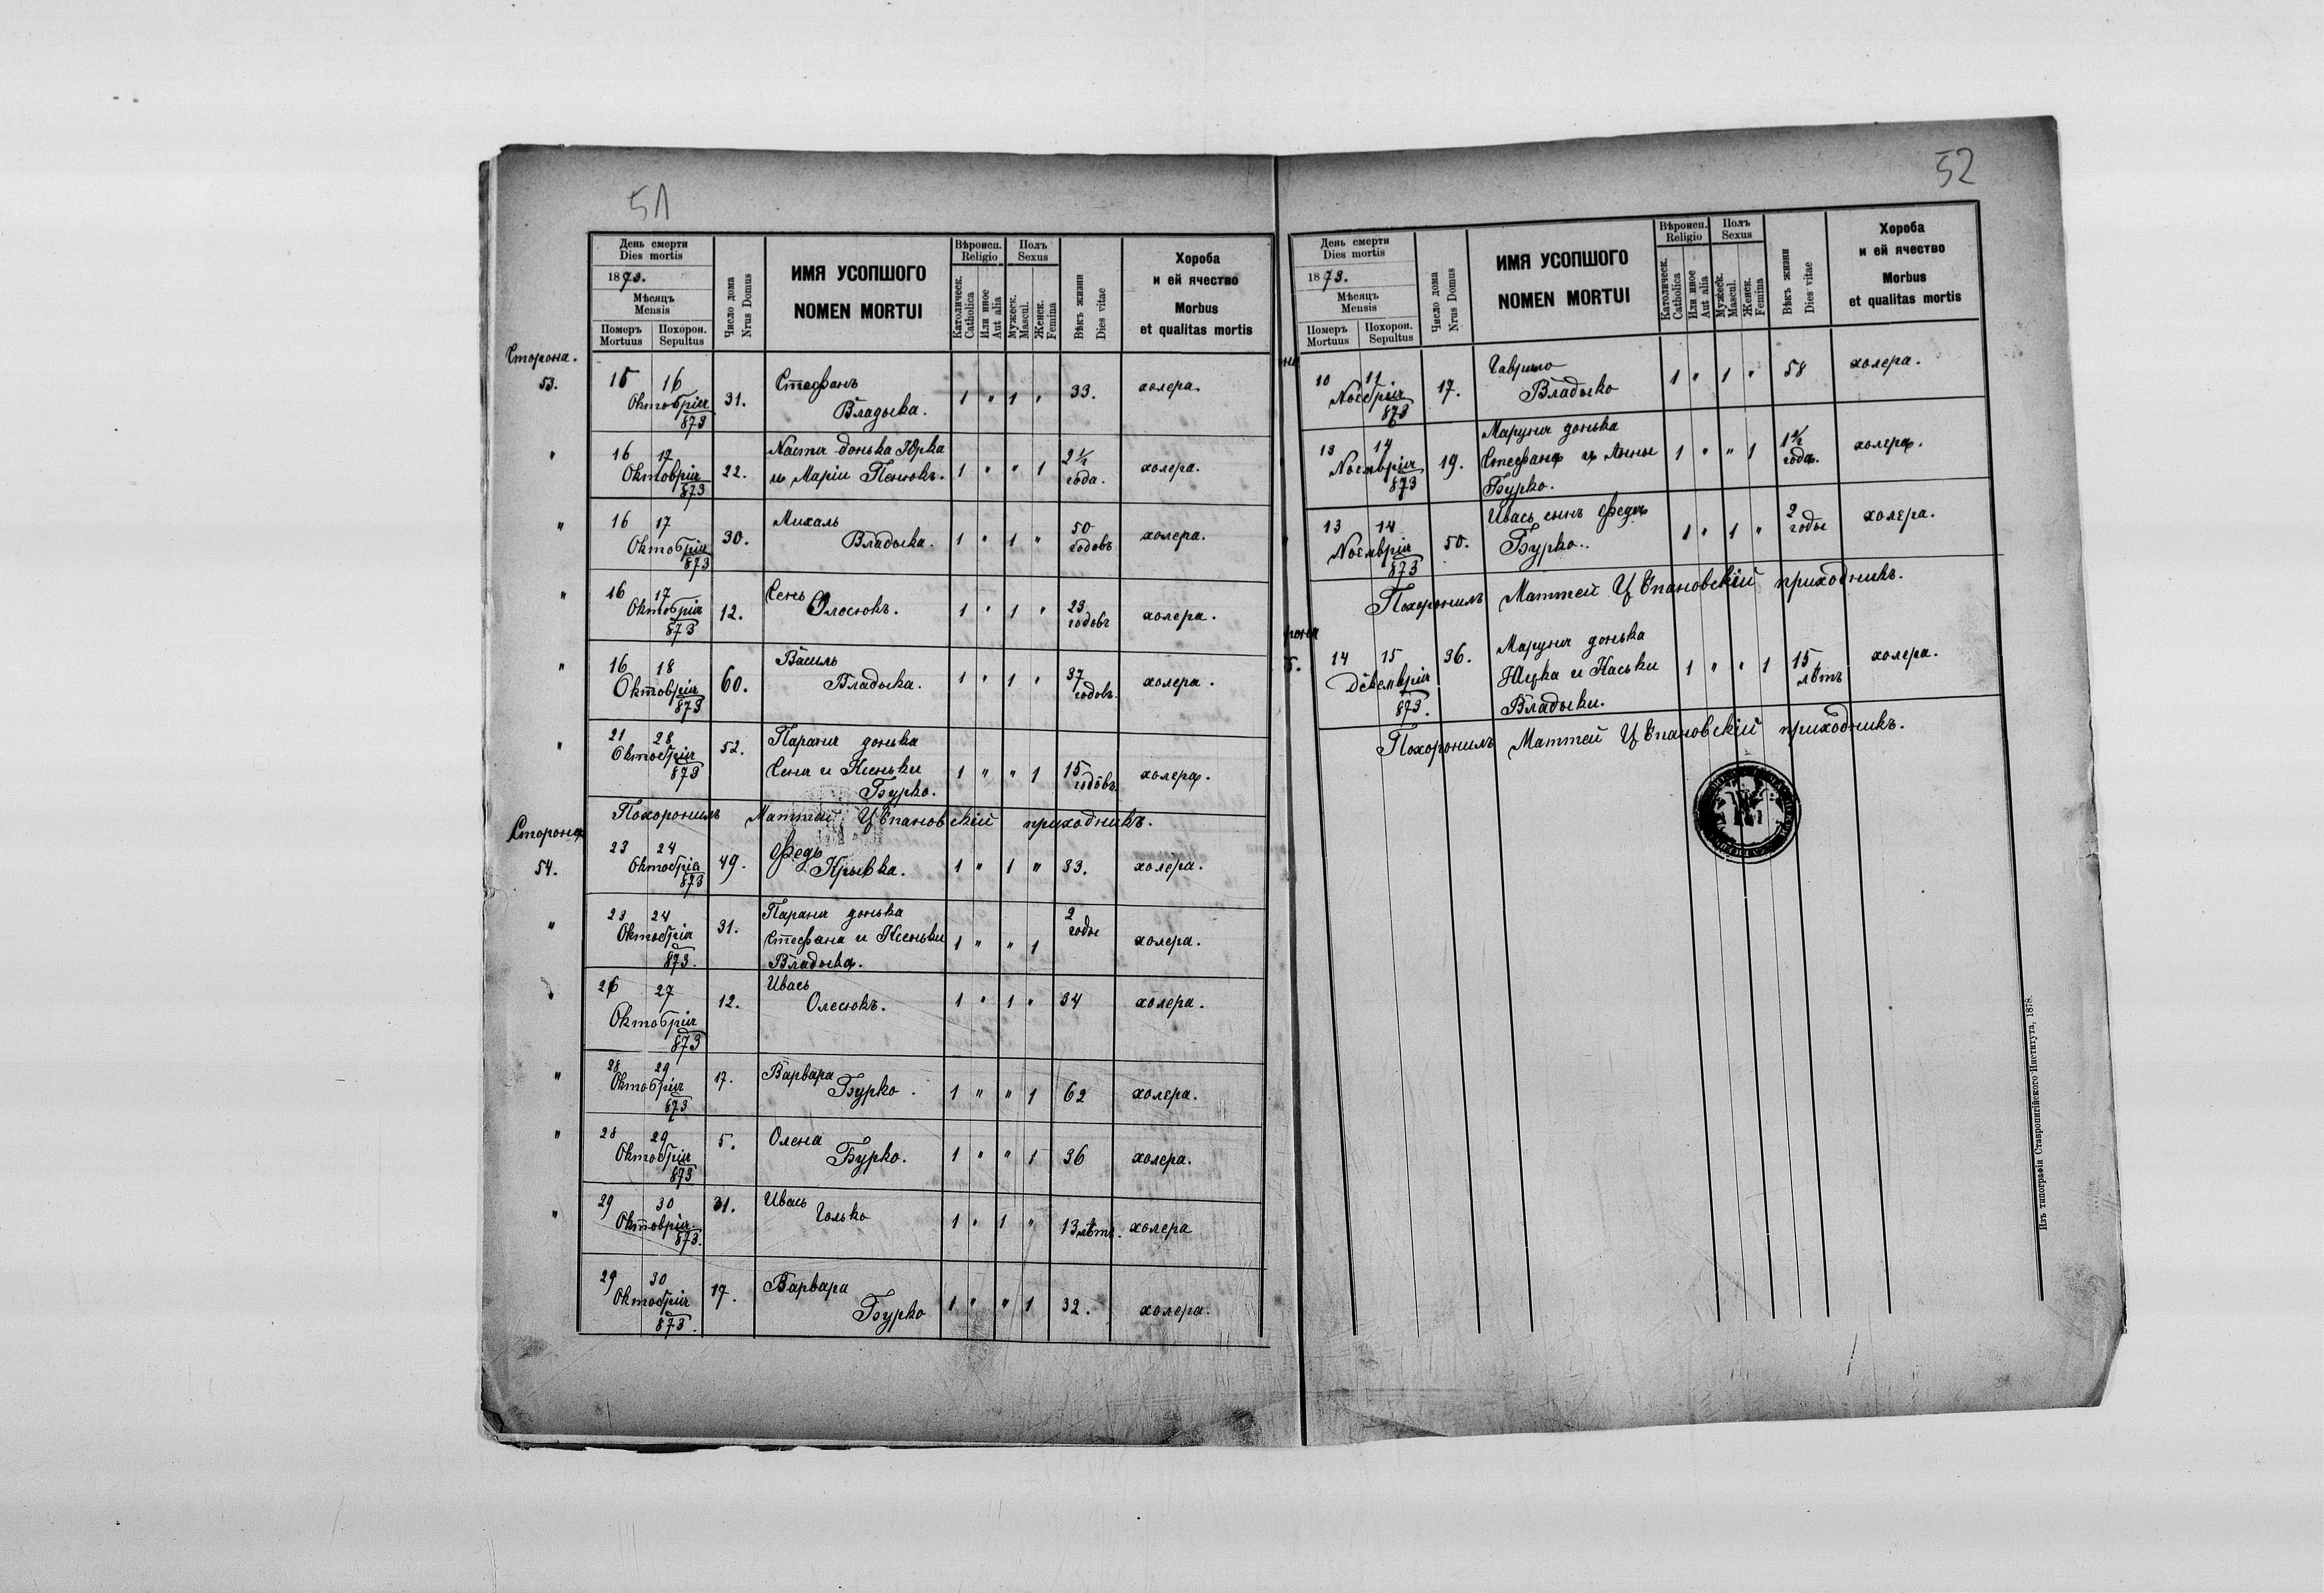 51
День смерти
Dies mortis
1873.
Мѣсяцъ
Mensis
Померъ Похорон.
Mortuus Sepultus
Число дома
Nrus Domus
ИМЯ УСОПШОГО
NOMEN MORTUI
Вѣроисп.
Religio
Католическ.
Catholica
Или иное
Aut alia
Полъ
Sexus
Мужеск.
Mascul.
Женск.
Femina
Вѣкъ жизни
Dies vitae
Хороба
и ей ячество
Morbus
et qualitas mortis
Сторона.
53.
15 16 Октобрія 873 31. Стефанъ
Владыка. 1 " 1 " 33. холера.
" 16 17 Октобрія 873 22. Настя донька Юрка
и Маріи Пенюкъ. 1 " " 1 2½ года. холера.
" 16 17 Октобрія 873 30. Михаль
Владыка. 1 " 1 " 50 годовъ холера.
" 16 17 Октобрія 873 12. Сень
Олесюкъ. 1 " 1 " 23 годовъ холера.
" 16 18 Октобрія 873 60. Василь
Владыка. 1 " 1 " 37 годовъ. холера.
" 21 28 Октобрія 873 52. Параня донька
Сеня и Ксеньки
Бурко. 1 " " 1 15 годовъ. холера.
Похоронилъ Маттей приходникъ.
Сторона
54.
23 24 Октобрія 873 49. Федь
Крывка. 1 " 1 " 33. холера.
" 23 24 Октобрія 873. 31. Параня донька
Стефана и Ксеньки
Владыка. 1 " " 1 2 годы холера.
" 26 27 Октобрія 873 12. Ивась
Олесюкъ. 1 " 1 " 34 холера.
" 28 29 Октобрія 873 17. Варвара
Бурко. 1 " " 1 62 холера.
" 28 29 Октобрія 873 5. Олена
Бурко. 1 " " 1 36 холера.
" 29 30 Октобрія 873. 31. Ивась
Голько 1 " 1 " 13 лѣтъ. холера
29 30 Октобрія 873. 17. Варвара
Бурко 1 " " 1 32. холера.
52
День смерти
Dies mortis
1873.
Мѣсяцъ
Mensis
Померъ Похорон.
Mortuus Sepultus
Число дома
Nrus Domus
ИМЯ УСОПШОГО
NOMEN MORTUI
Вѣроисп.
Religio
Католическ.
Catholica
Или иное
Aut alia
Полъ
Sexus
Мужеск.
Mascul.
Женск.
Femina
Вѣкъ жизни
Dies vitae
Хороба
и ей ячество
Morbus
et qualitas mortis
10 11 Ноебрія 873 17. Гаврило
Владыко 1 " 1 " 58 холера.
13 14 Ноемврія 873 19. Маруня донька
Стефана и Анны
Бурко. 1 " " 1 1½ года. холера.
13 14 Ноемврія 873 50. Ивась сынъ Федя
Бурко. 1 " 1 " 2 годы холера.
Похоронилъ Маттей приходникъ.
14 15 Декемврія 873. 36. Маруня донька
Юцка и Каськи
Владыки. 1 " " 1 15 лѣтъ холера.
Похоронилъ Маттей приходникъ.
Изъ типографіи Ставропигійского Института, 1878.